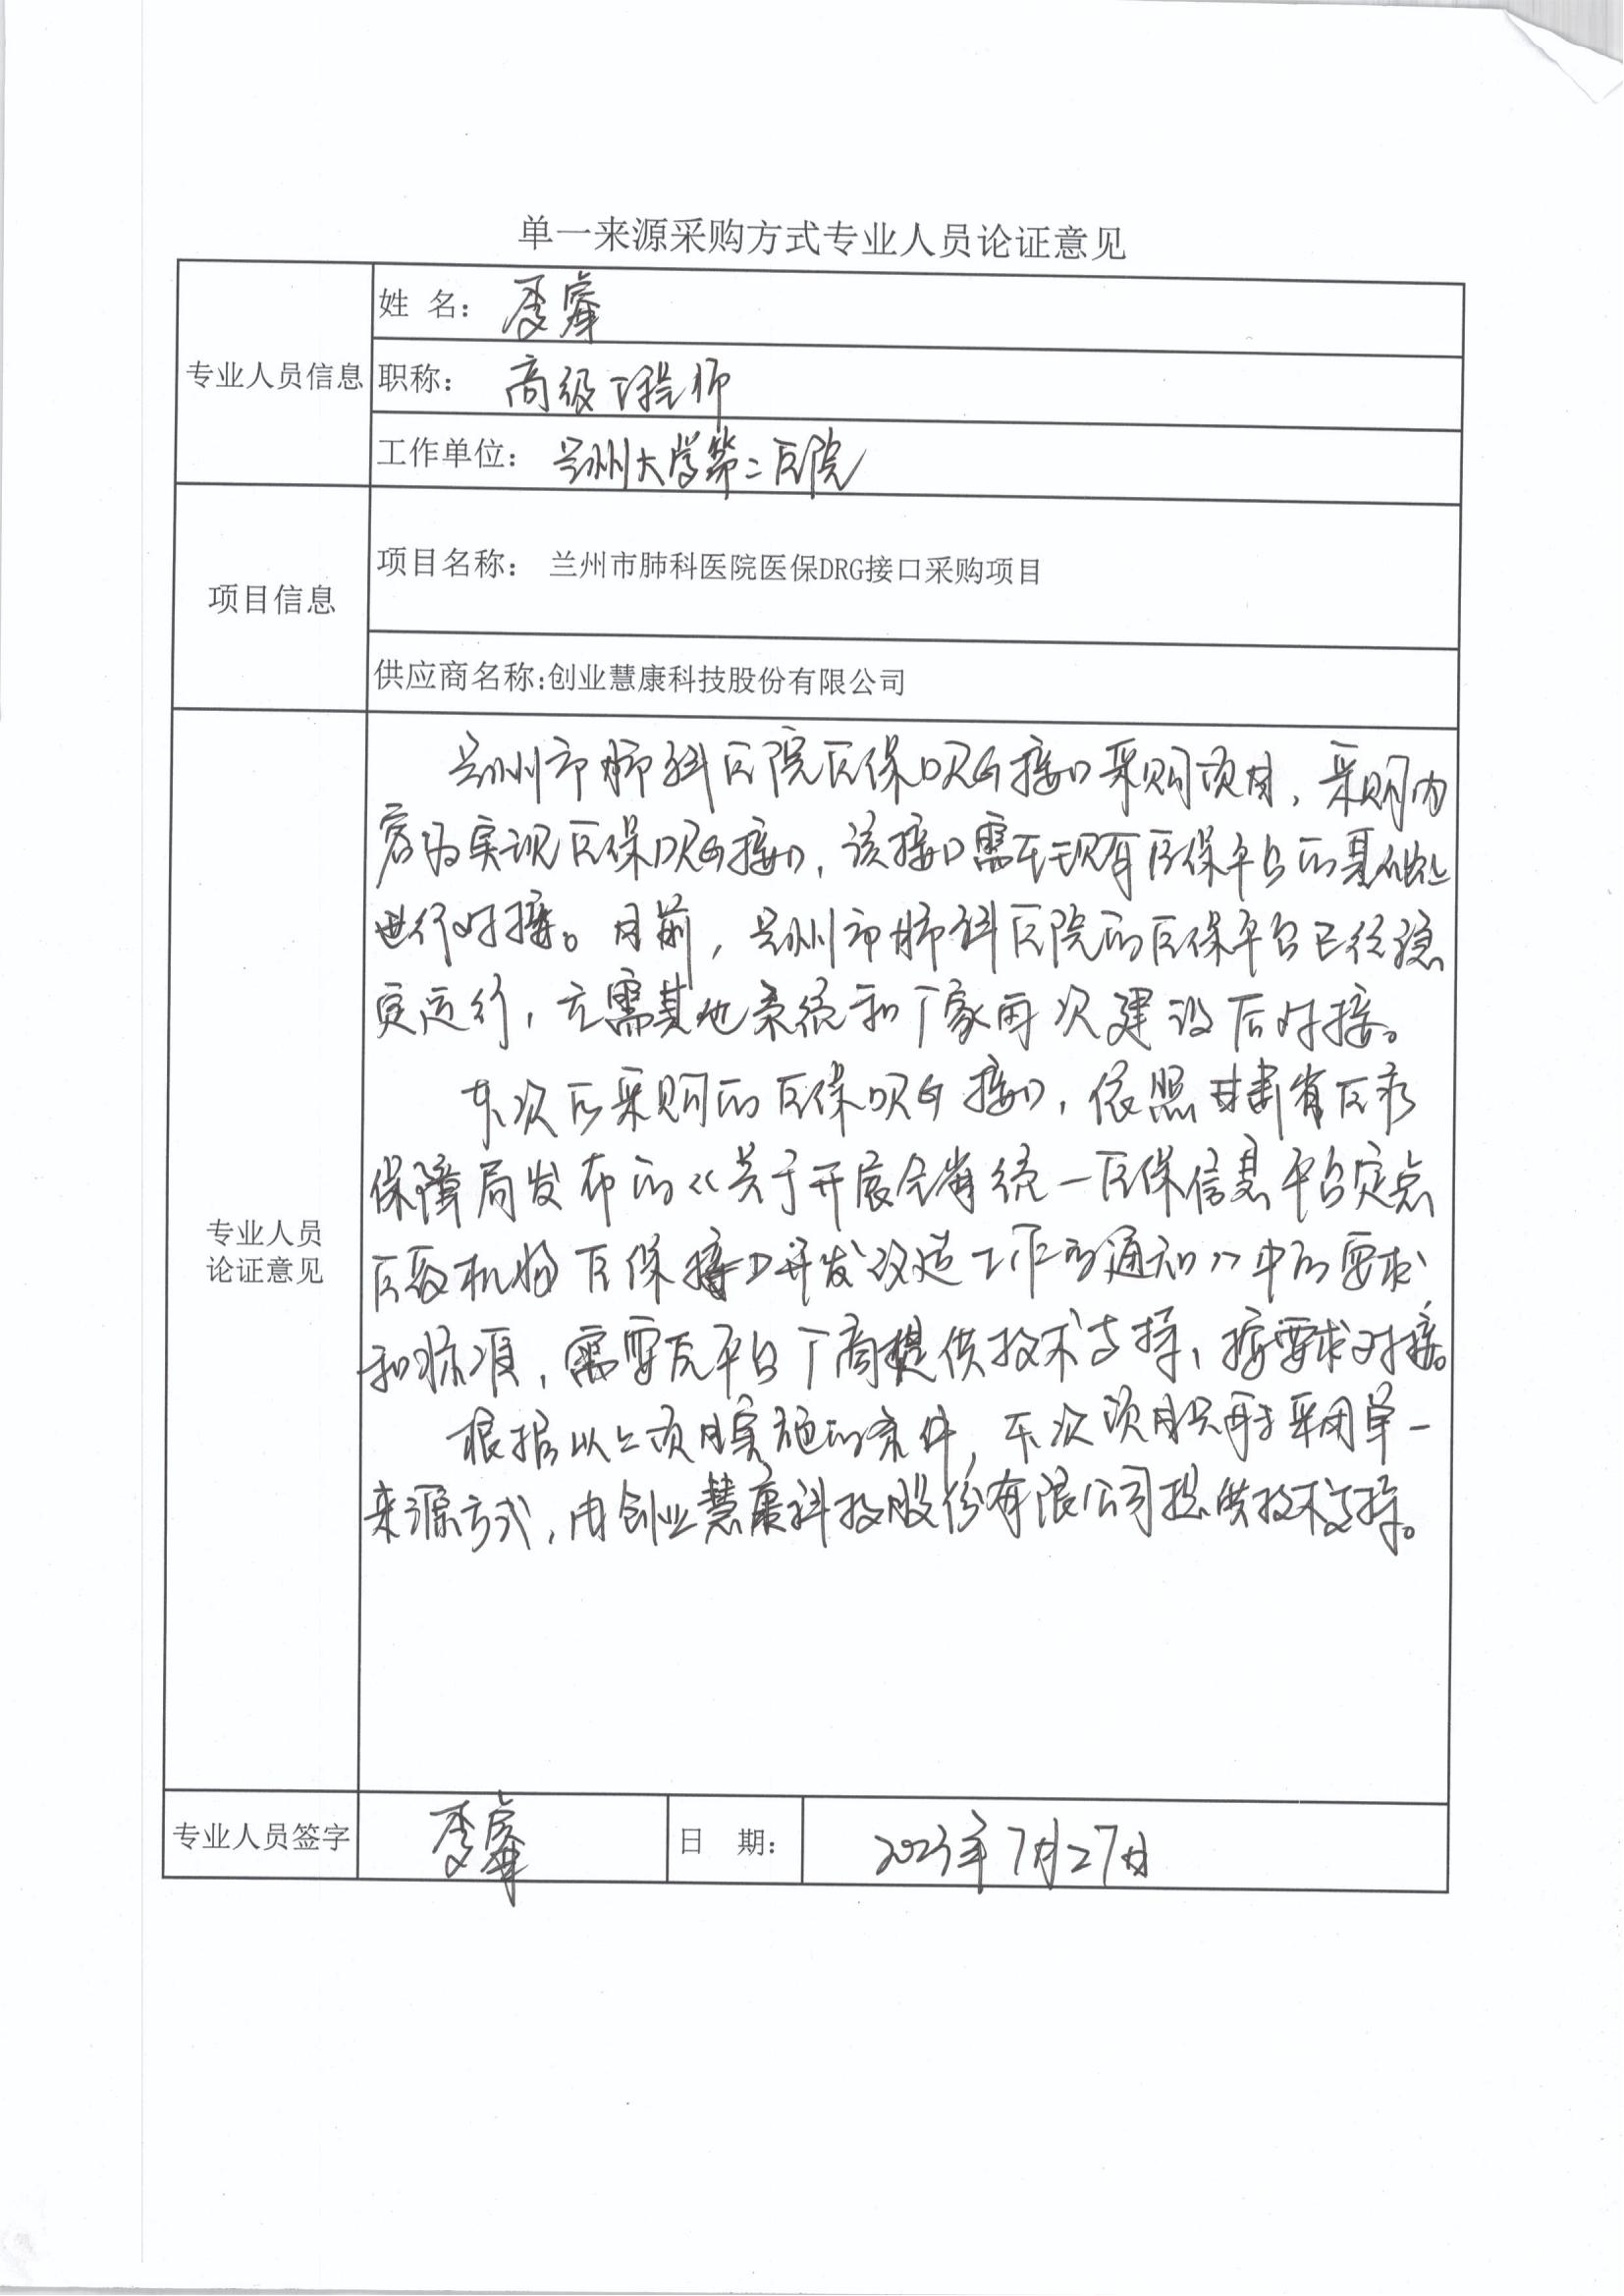 单一来源采购方式专业人员论证意见
专业人员信息
姓 名：
职称： 高级工程师
工作单位： 兰州大学第二医院
项目信息
项目名称： 兰州市肺科医院医保DRG接口采购项目
供应商名称:创业慧康科技股份有限公司
专业人员
论证意见
兰州市肺科医院医保DRG接口采购项目，采购内
容为实现医保DRG接口，该接口需在现有医保平台的基础上
进行对接。目前，兰州市肺科医院的医保平台已经稳
定运行，无需其他系统和厂家再次建设后对接。
本次所采购的医保DRG接口，依照甘肃省医疗
保障局发布的《关于开展全省统一医保信息平台定点
医药机构医保接口开发改造工作的通知》中的要求
和标准，需要原平台厂商提供技术支持，按要求对接。
根据以上项目实施的条件，本次项目只采用单一
来源方式，由创业慧康科技股份有限公司提供技术支持。
专业人员签字
日 期： 2023年7月27日